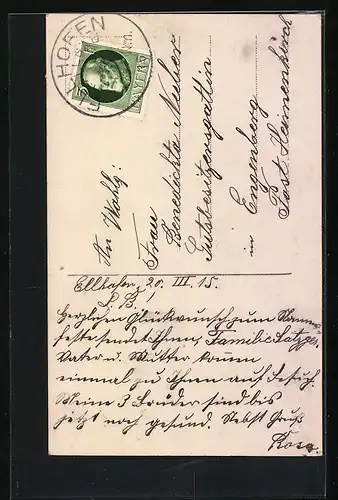 ELLHOFEN
BAYERN
5
An Wohlg:
Frau
Benedickta Neuber
Gutsbesitzersgattin
in Engenberg
Post Heimenkirch
Ellhofen, 20. III. 15.
L. B.!
Herzlichen Glückwunsch zum Namens-
feste sendet Ihnen, Familie
Vater u. Mutter kommen
einmal zu Ihnen auf Besuch.
Meine 3 Brüder sind bis
jetzt noch gesund. Nebst Gruß
Rosa.